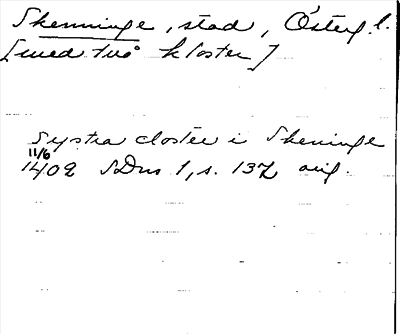 Skenninge, stad, Österg. l.
[med två kloster]
Systra closter i Skeninge
11/6
1402 SDns 1, s. 137 orig.